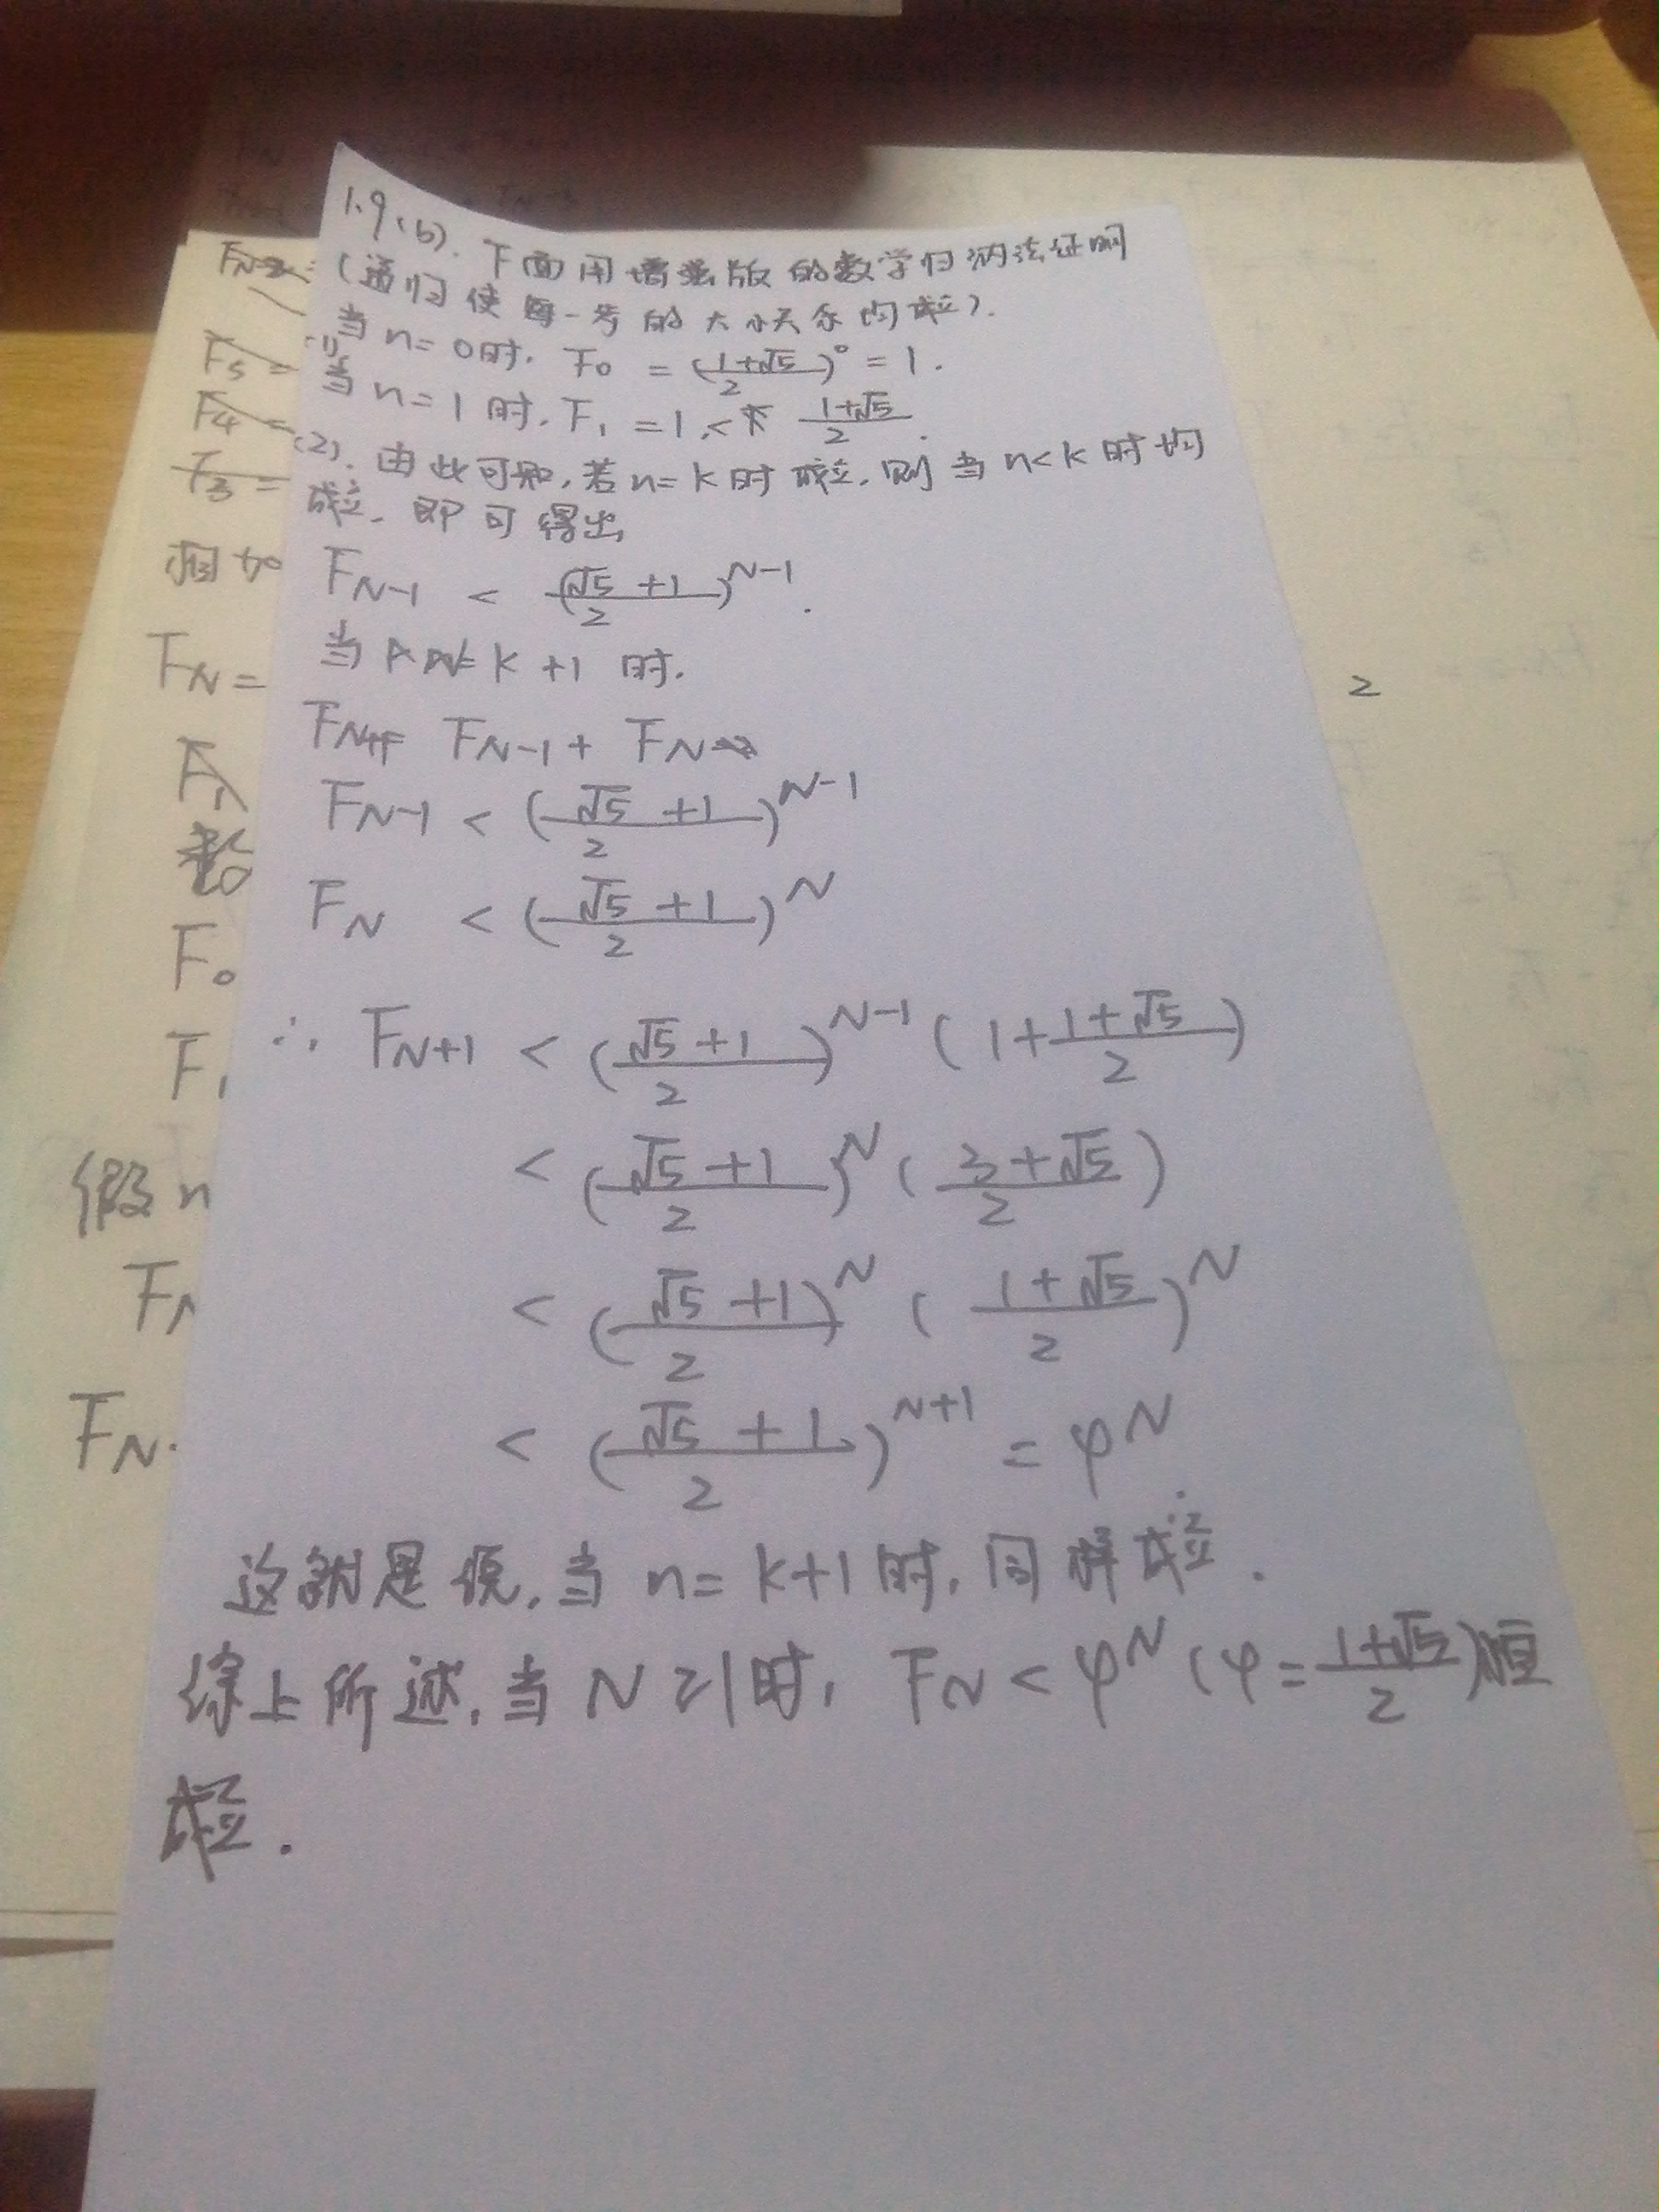 1.9(b). 下面用增强版的数学归纳法证明
(递归使每一步的大小关系均成立).
当n=0时. F₀ = (1+√5/2)⁰ = 1.
(1)当n=1时. F₁ = 1 < 1+√5/2.
(2). 由此可知, 若n=k时成立. 则当n<k时均
成立. 即可得出
F_{N-1} < (√5+1/2)^{N-1}.
当 N=k+1 时.
F_{N+1} = F_{N-1} + F_N
F_{N-1} < (√5+1/2)^{N-1}
F_N < (√5+1/2)^N
∴ F_{N+1} < (√5+1/2)^{N-1} (1+1+√5/2)
< (√5+1/2)^N (3+√5/2)
< (√5+1/2)^N (1+√5/2)^N
< (√5+1/2)^{N+1} = φ^N.
这就是说, 当n=k+1时, 同样成立.
综上所述, 当N≥1时, F_N < φ^N (φ=1+√5/2)恒
成立.
F₅ =
F₄ =
F₃ =
相加
F_N =
F₀
F₁
假n
F_N
2